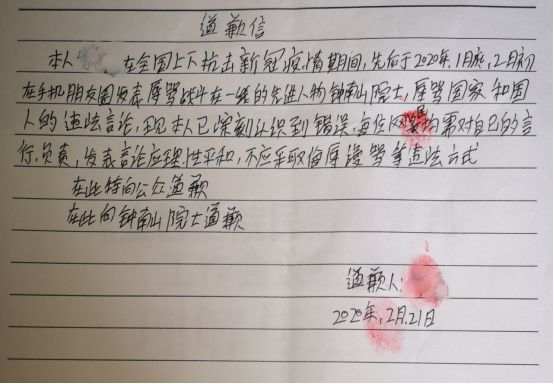 道歉信
本人 在全国上下抗击新冠疫情期间,先后于2020年1月底,2月初
在手机朋友圈发表辱骂战斗在一线的先进人物钟南山院士,辱骂国家和国
人的违法言论,现本人已深刻认识到错误,每位 均需对自己的言
行负责,发表言论应理性平和,不应采取侮辱谩骂等违法方式
在此特向公众道歉
在此向钟南山院士道歉
道歉人:
2020年,2月21日